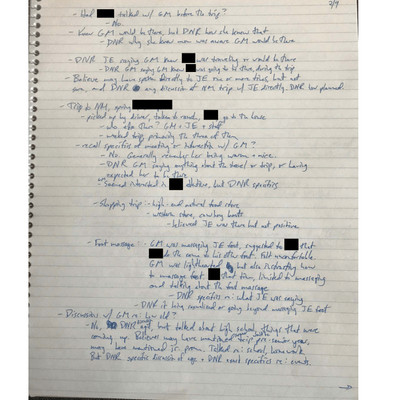 3/9
- Had talked w/ GM before the trip?
- No.
- Knew GM would be there but DNR how she knew that
- DNR why she knew mom was aware GM would be there
- DNR JE saying GM knew was travelling or would be there
- DNR GM saying GM knew was going to be there during the trip
- Believes may have spoken directly to JE one or more times, but not
sure, and DNR any discussion of NM trip w/ JE directly. DNR how planned.
- Trip to NM, spring
- picked up by driver, taken to ranch, go to the house
- who else there? GM + JE + staff
- mostly trip, primarily the three of them
- recall specifics of meeting or interaction w/ GM?
- No. Generally remember her being warm + nice.
- DNR GM saying anything about the travel or trip, or having
expected her to be there
- Seemed interested in, but DNR specifics
- Shopping trip: - high-end natural food store
- western store, cowboy boots
- believed JE was there but not positive
- Foot massage: - GM was massaging JE foot, suggested to that
do the same to his other foot. Felt uncomfortable.
GM was lighthearted but also instructing how
to massage foot. that time, limited to massaging
and talking about the foot massage
- DNR specifics re: what JE was saying
- DNR it being sexualized or going beyond massaging JE foot
- Discussion w/ GM re: how old?
- No, DNR age, but talked about high school, things that were
coming up. Believes may have mentioned trip pre-senior year,
may have mentioned jr. prom. Talked re: school, homework
But DNR specific discussion of age + DNR exact specifics re: events.